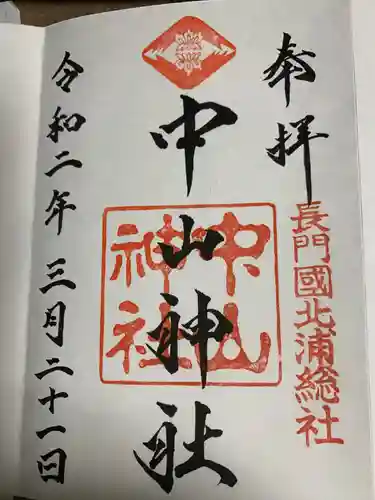 奉拝
長門國北浦総社
中山神社
中山
神社
令和二年三月二十一日